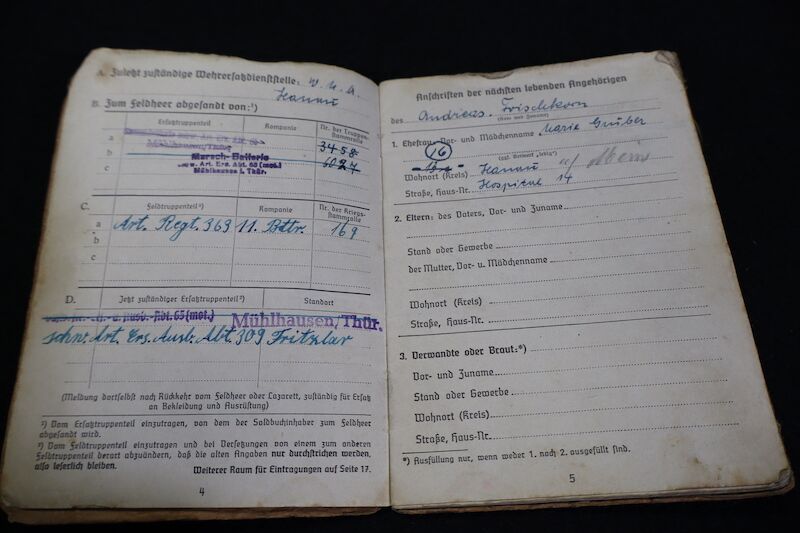 A. Zuletzt zuständige Wehrersatzdienststelle: W. M. A.
Hanau
B. Zum Feldheer abgesandt von:¹)
Ersatztruppenteil Kompanie Nr. der Truppenstammrolle
a 3458
b Marsch-Batterie 6027
c schw. Art. Ers. Abt. 65 (mot.)
Mühlhausen i. Thür.
C. Feldtruppenteil²) Kompanie Nr. der Kriegsstammrolle
a Art. Regt. 363 11. Battr. 169
b
c
D. Jetzt zuständiger Ersatztruppenteil²) Standort
Ausb.-Abt. 65 (mot.) Mühlhausen/Thür.
schw. Art. Ers. Ausb. Abt. 309 Fritzlar
(Meldung dortselbst nach Rückkehr vom Feldheer oder Lazarett, zuständig für Ersatz
an Bekleidung und Ausrüstung)
¹) Vom Ersatztruppenteil einzutragen, von dem der Soldbuchinhaber zum Feldheer
abgesandt wird.
²) Vom Feldtruppenteil einzutragen und bei Versetzungen von einem zum anderen
Feldtruppenteil derart abzuändern, daß die alten Angaben nur durchstrichen werden,
also leserlich bleiben.
Weiterer Raum für Eintragungen auf Seite 17.
4
Anschriften der nächsten lebenden Angehörigen
des Andreas Frischkorn
(Vor- und Zuname)
1. Ehefrau: Vor- und Mädchenname Marie Gruber
(ggf. Vermerk „ledig“)
Wohnort (Kreis) Hanau a/ Main
Straße, Haus-Nr. Hospital 14
2. Eltern: des Vaters, Vor- und Zuname
Stand oder Gewerbe
der Mutter, Vor- u. Mädchenname
Wohnort (Kreis)
Straße, Haus-Nr.
3. Verwandte oder Braut:*)
Vor- und Zuname
Stand oder Gewerbe
Wohnort (Kreis)
Straße, Haus-Nr.
*) Ausfüllung nur, wenn weder 1. noch 2. ausgefüllt sind.
5